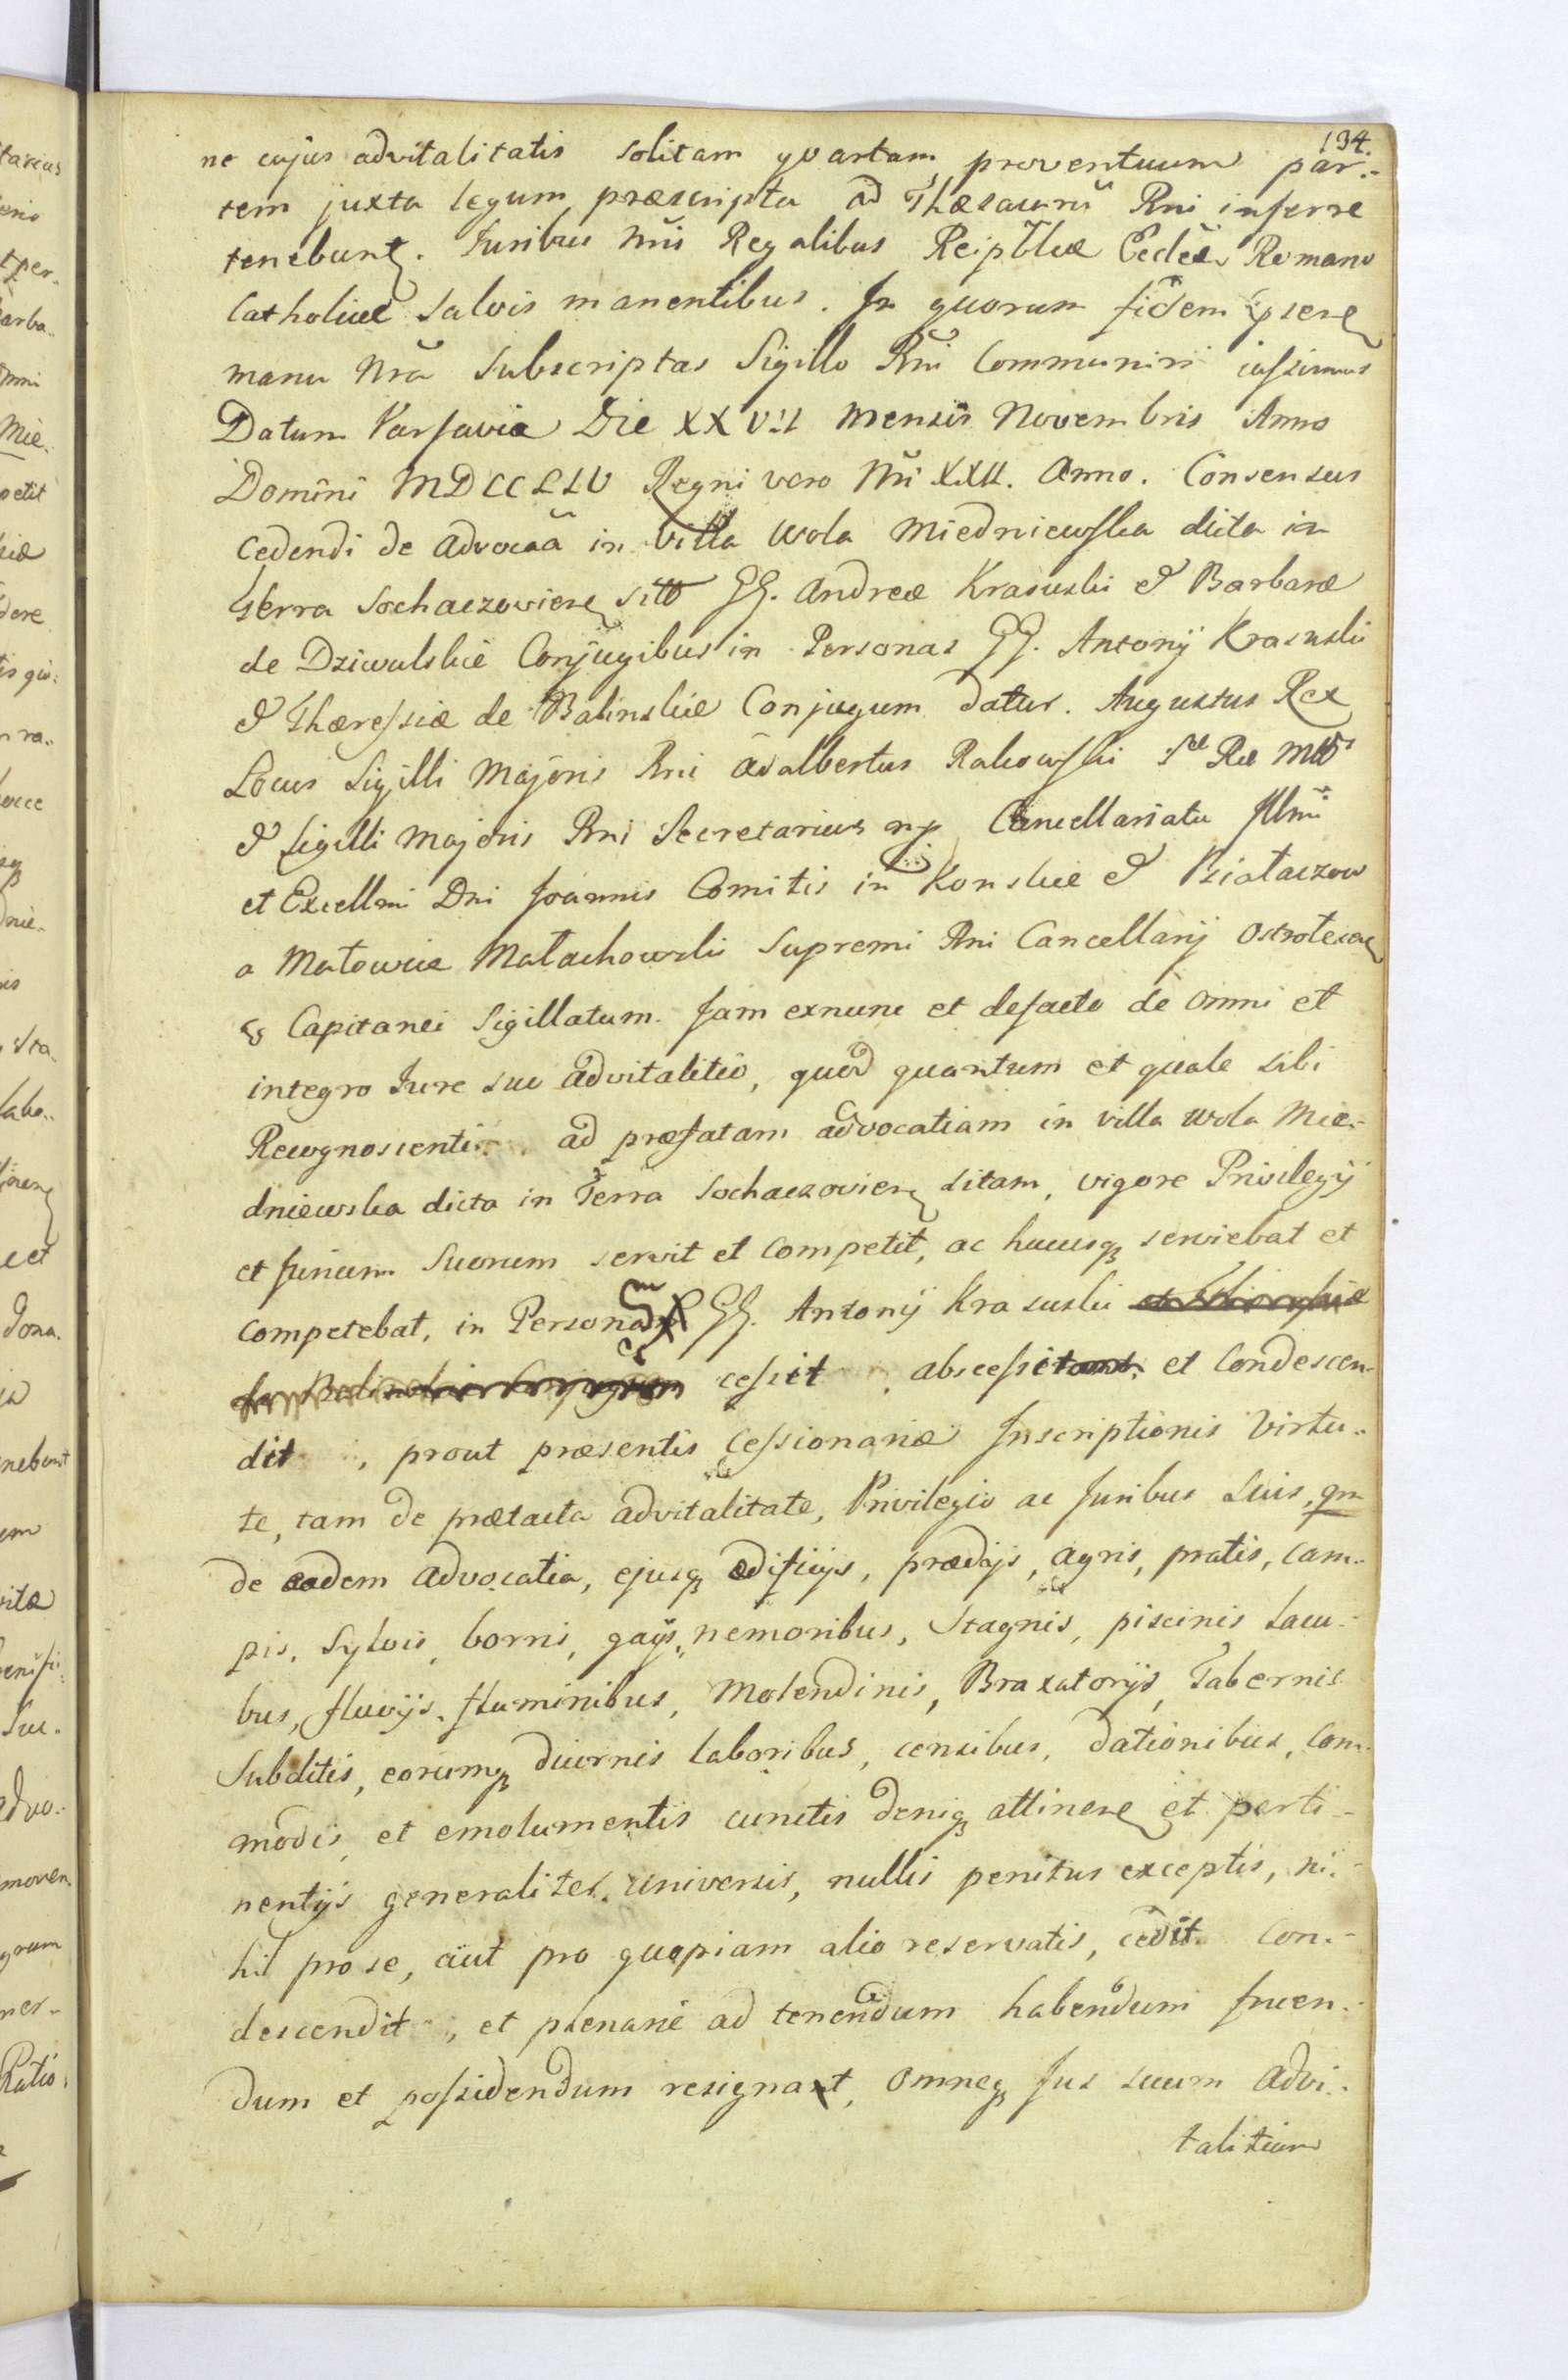 134.
ne cujus advitalitatis solitam quartam proventuum par-
tem juxta legum præscripta ad Thæsaurũ Rni inferre
tenebunt. Iuribus Nris Regalibus Reipblicæ Eccliæ Romano
Catholicæ salvis manentibus. In quorum fidem
manu Nrã Subscriptas Sigillo Rni Communiri iussimus
Datum Varsaviæ Die XXVII mensis Novembris Anno
Domini MDCCLIV Regni vero Nri XXII. Anno. Consensus
cedendi de Advocãa in Villa Wola Miedniewska dicta in
terra Sochaczovien sitta GG. Andreæ Krasuski & Barbaræ
de Dziwulskie Conjugibus in Personas GG. Antonij Krasuski
& Thæressiæ de Balinskie Conjugum datus. Augustus Rex
Locus Sigilli Majoris Rni Adalbertus Rakowski Sæ Ræ Mtts
& Sigilli Majoris Rni Secretarius mp Cancellariatu Illmi
et Excellmi Dni Joannis Comitis in Konskie & Bialaczow
a Małowice Małachowski Supremi Rni Cancellarij Ostrolecen
& Capitanei Sigillatum. Jam exnunc et defacto de omni et
integro Iure suo advitalitio, quod quantum et quale sibi
Recognoscenti ad præfatam advocatiam in villa Wola Mie-
dniewska dicta in Terra Sochaczovien sitam, vigore Privilegij
et Jurium Suorum servit et Competit, ac hucusq serviebat et
competebat, in Personam GG. Antonij Krasuski
de Balinskie Conjugum cessit abscessit et Condescen-
dit, prout præsentis Cessionariæ Inscriptionis Virtu-
te, tam de prætacta advitalitate, Privilegio ac Juribus suis, qm
de eadem Advocatia, ejusq ædificijs, prædijs, agris, pratis, cam-
pis, Sylvis, borris, gays, nemoribus, Stagnis, piscinis lacu-
bus, fluvijs, fluminibus, Molendinis, Braxatorijs, Tabernis
Subditis, eorumq diurnis laboribus, censibus, dationibus, Com-
modis, et emolumentis cunctis deniq attinen et perti-
nentijs generaliter universis, nullis penitus exceptis, ni-
hil pro se, aut pro quopiam alio reservatis, cedit Con-
descendit, et plenarie ad tenendum habendum fruen-
dum et possidendum resignat, omneq Jus suum Advi-
talitium